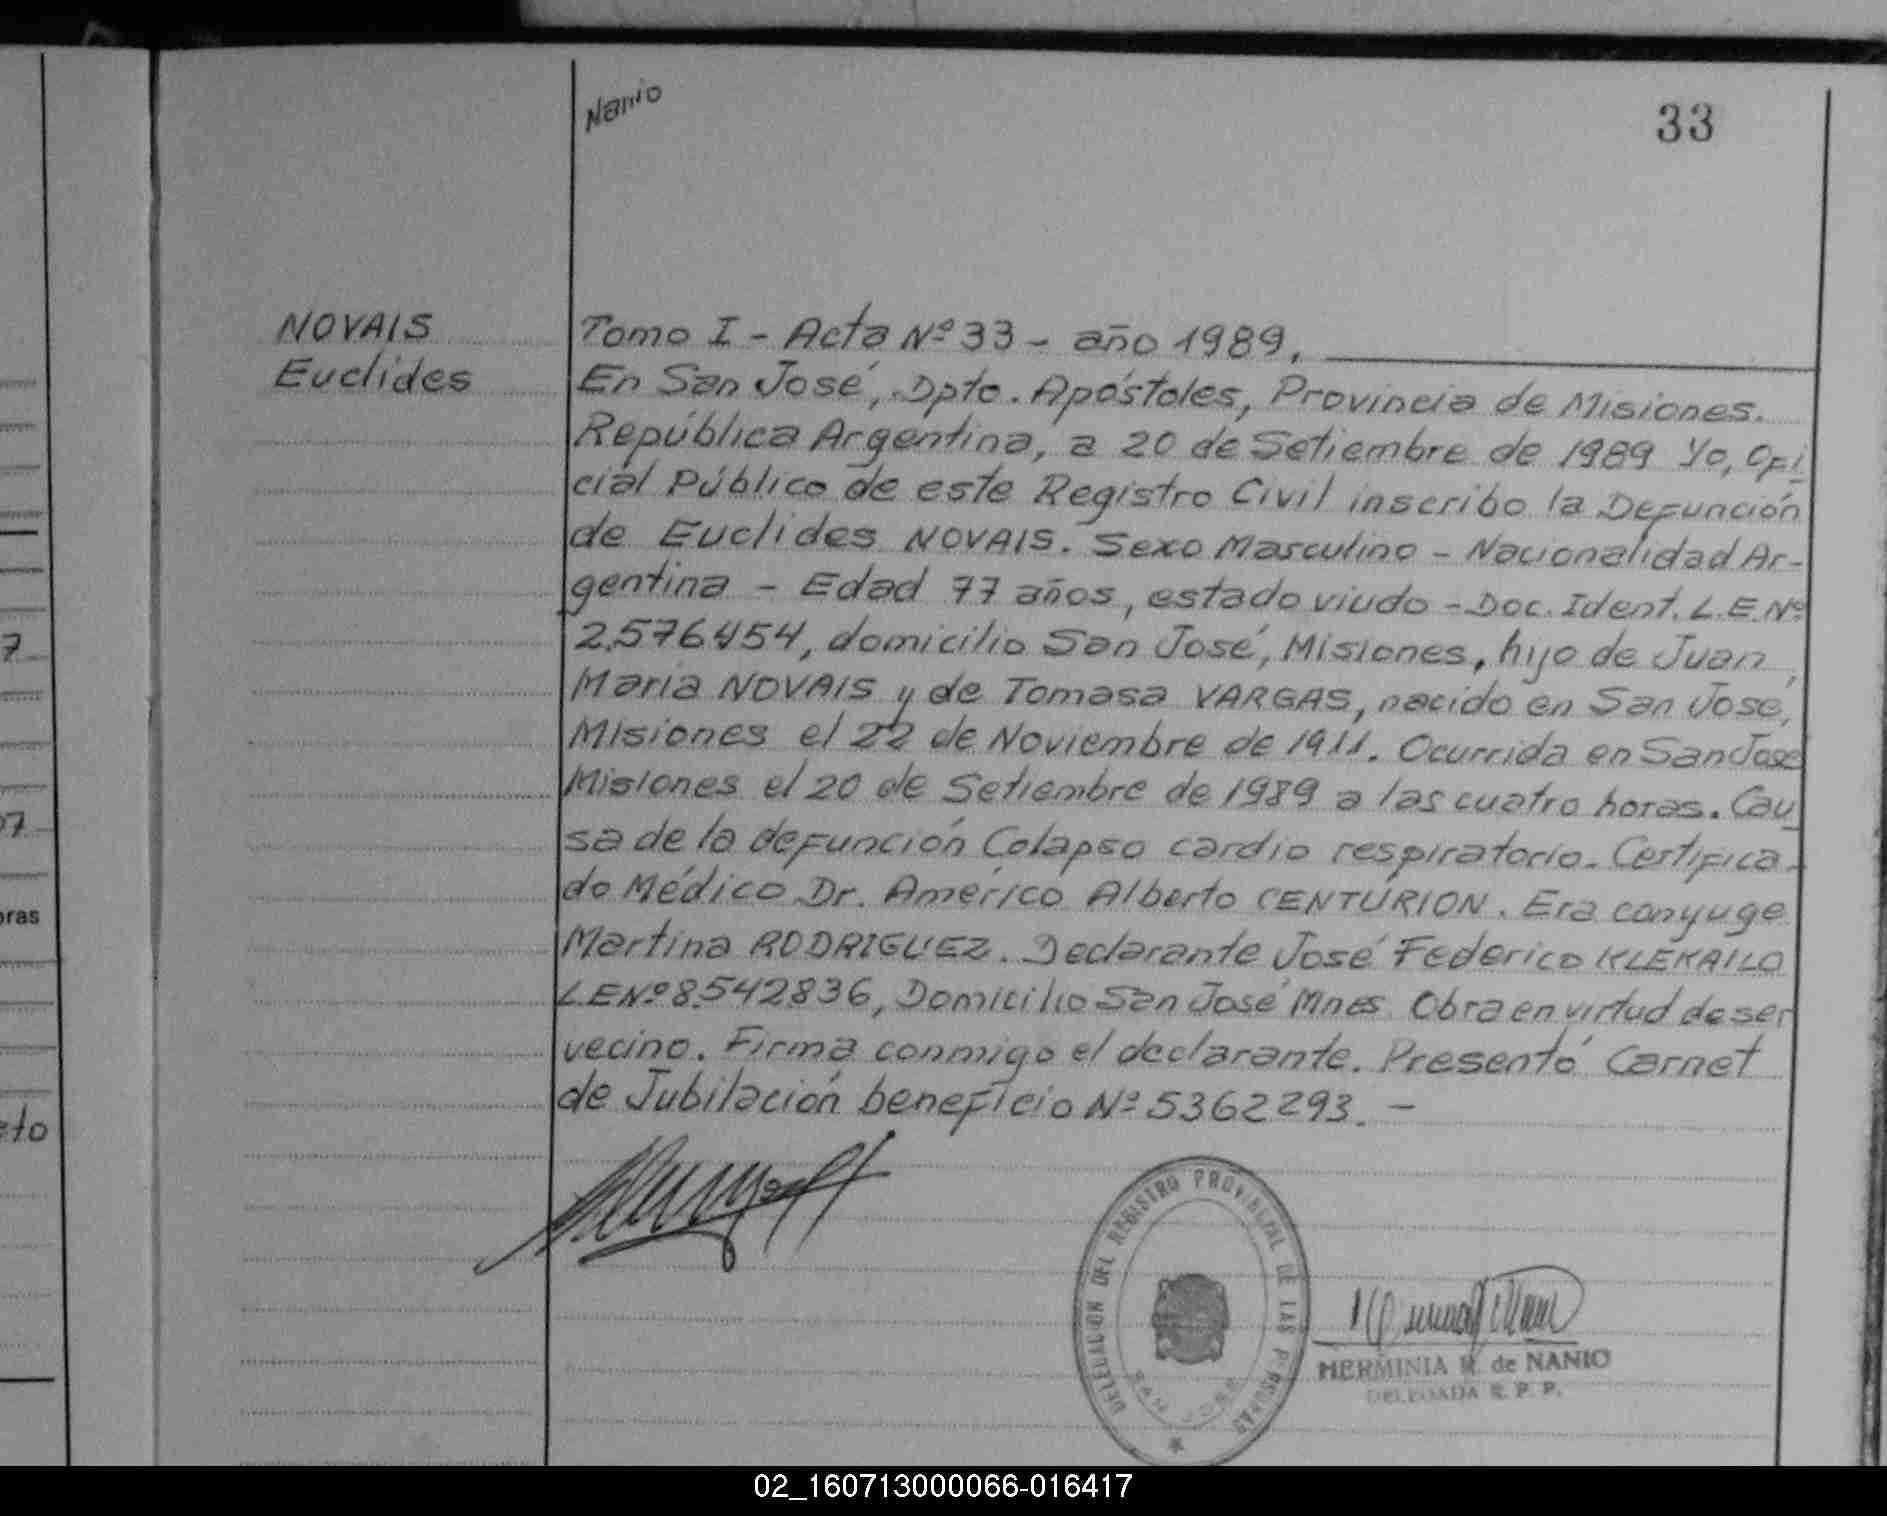 Nanio
33
NOVAIS
Euclides
Tomo I - Acta Nº 33 - año 1989.
En San José, Dpto. Apóstoles, Provincia de Misiones.
República Argentina, a 20 de Setiembre de 1989 Yo, Ofi
cial Público de este Registro Civil inscribo la Defunción
de Euclides NOVAIS. Sexo Masculino - Nacionalidad Ar-
gentina - Edad 77 años, estado viudo - Doc. Ident. L.E. Nº
2.576454, domicilio San José, Misiones, hijo de Juan
María NOVAIS y de Tomasa VARGAS, nacido en San José,
Misiones el 22 de Noviembre de 1911. Ocurrida en San José
Misiones el 20 de Setiembre de 1989 a las cuatro horas. Cau
sa de la defunción Colapso cardio respiratorio. Certifica-
do Médico Dr. Américo Alberto CENTURION. Era conyuge
Martina RODRIGUEZ. Declarante José Federico KLEKAILO
L.E Nº 8.542836, Domicilio San José Mnes. Obra en virtud de ser
vecino. Firma conmigo el declarante. Presentó Carnet
de Jubilación beneficio Nº 5362293. -
DELEGACION DEL REGISTRO PROVINCIAL DE LAS PERSONAS
SAN JOSE
HERMINIA R. de NANIO
DELEGADA R. P. P.
7
07
oras
eto
02_160713000066-016417